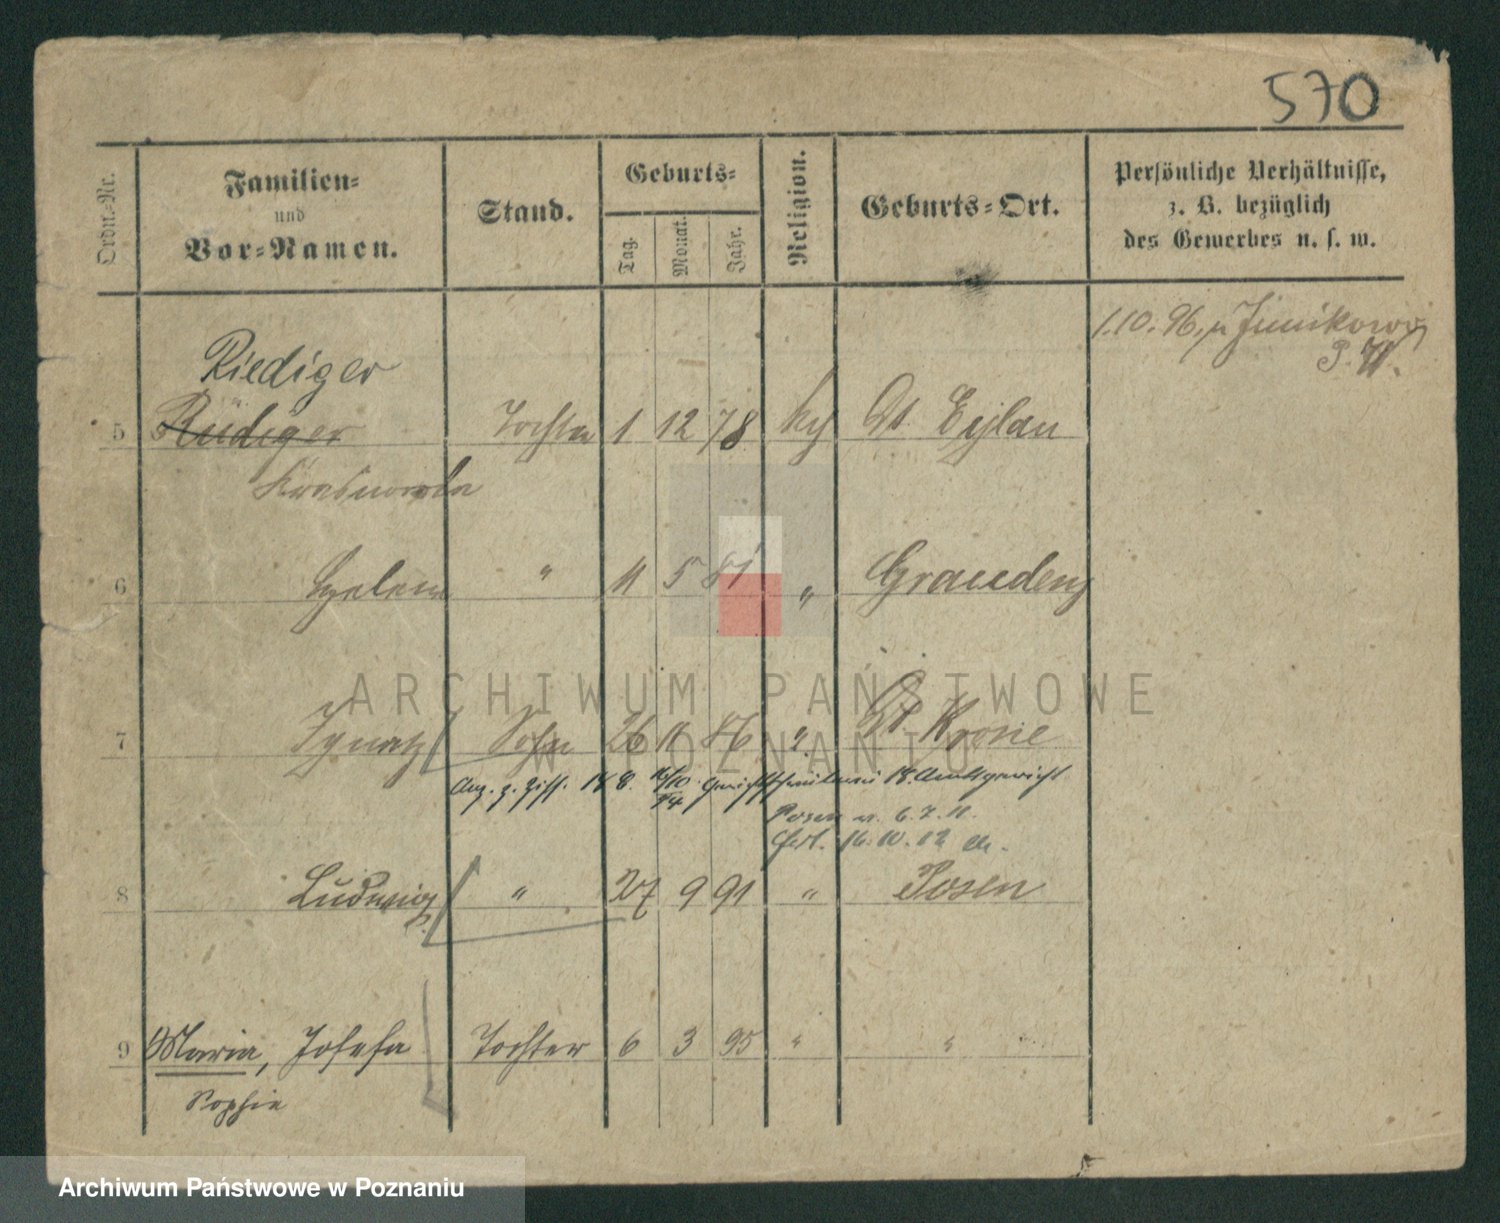 570
Ordn.-Nr.
Familien-
und
Vor-Namen.
Stand.
Geburts-
Tag.
Monat.
Jahr.
Religion.
Geburts-Ort.
Persönliche Verhältnisse,
z. B. bezüglich
des Gewerbes u. s. w.
1.10.96,
Riediger
5 Rüdiger Tochter 1 12 78 Dt. Eylau
6 Helene " 11 5 81 " Graudenz
7 Ignatz Sohn 26 11 86 " Dt Krone
Amtsgericht
Posen 6.7.11.
16.10.12
8 Ludwig " 27 9 91 " Posen
9 Maria, Josefa Tochter 6 3 95 " "
Sophie
ARCHIWUM PAŃSTWOWE
W POZNANIU
Archiwum Państwowe w Poznaniu